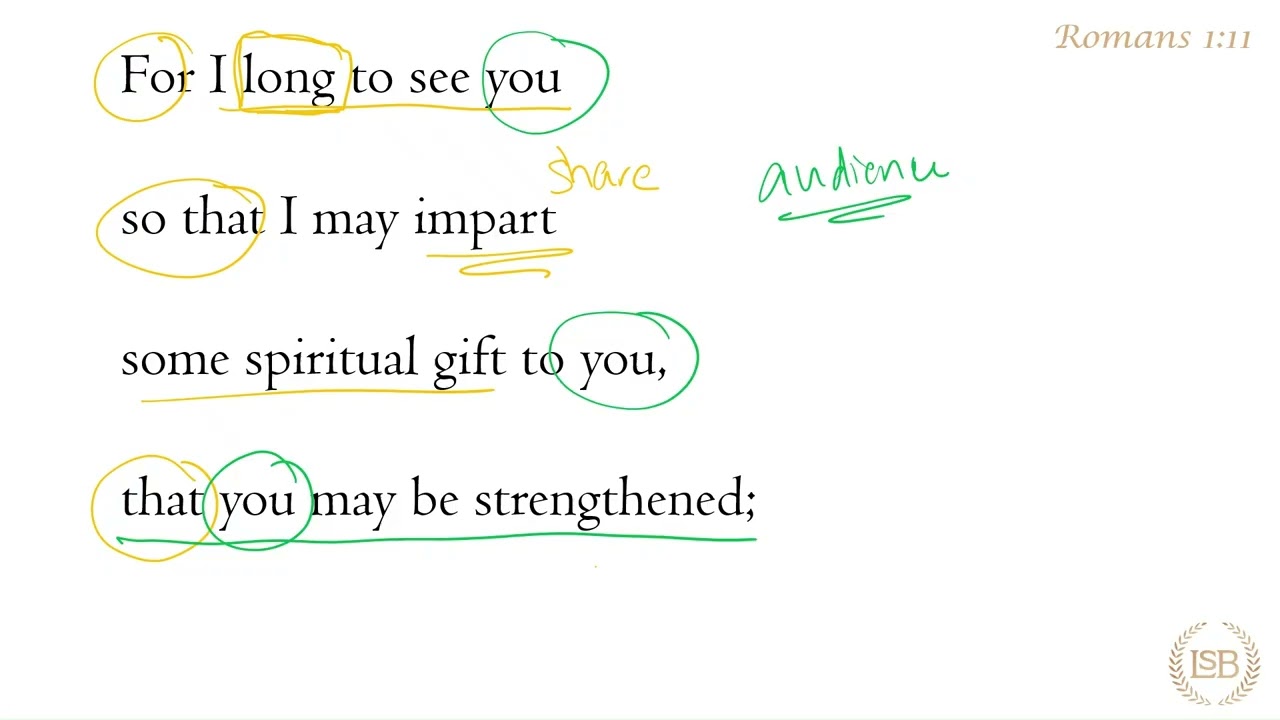 Romans 1:11
For I long to see you
share
audience
so that I may impart
some spiritual gift to you,
that you may be strengthened;
LSB